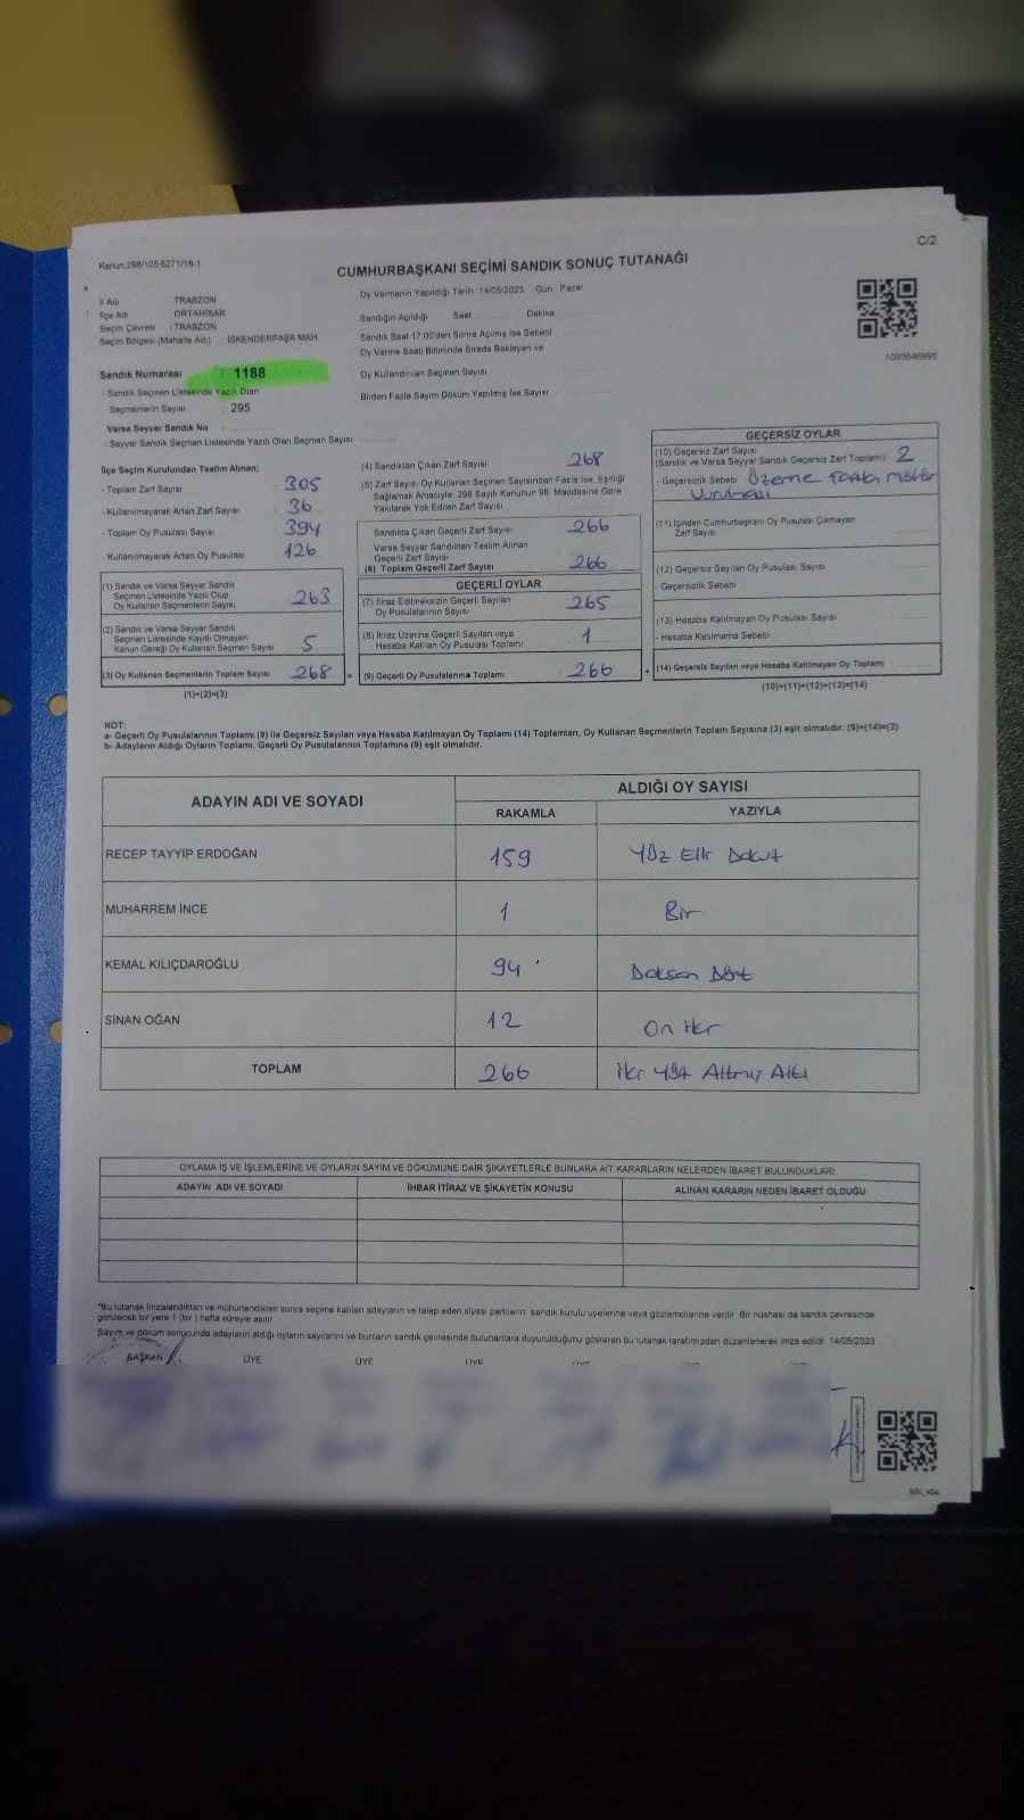 C/2
Kanun 298/105 6271/18-1
CUMHURBAŞKANI SEÇİMİ SANDIK SONUÇ TUTANAĞI
İl Adı TRABZON
İlçe Adı ORTAHİSAR
Seçim Çevresi : TRABZON
Seçim Bölgesi (Mahalle Adı) : İSKENDERPAŞA MAH
Oy Vermenin Yapıldığı Tarih: 14/05/2023 Gün: Pazar
Sandığın Açıldığı Saat Dakika
Sandık Saat 17.00'den Sonra Açılmış İse Sebebi
Oy Verme Saati Bitiminde Sırada Bekleyen ve
Oy Kullandırılan Seçmen Sayısı
Birden Fazla Sayım Döküm Yapılmış İse Sayısı
Sandık Numarası : 1188
- Sandık Seçmen Listesinde Yazılı Olan
Seçmenlerin Sayısı 295
Varsa Seyyar Sandık No
- Seyyar Sandık Seçmen Listesinde Yazılı Olan Seçmen Sayısı
İlçe Seçim Kurulundan Teslim Alınan:
- Toplam Zarf Sayısı 305
- Kullanılmayarak Artan Zarf Sayısı 36
- Toplam Oy Pusulası Sayısı 394
- Kullanılmayarak Artan Oy Pusulası 126
(1) Sandık ve Varsa Seyyar Sandık
Seçmen Listesinde Yazılı Olup
Oy Kullanan Seçmenlerin Sayısı 263
(2) Sandık ve Varsa Seyyar Sandık
Seçmen Listesinde Kayıtlı Olmayan
Kanun Gereği Oy Kullanan Seçmen Sayısı 5
(3) Oy Kullanan Seçmenlerin Toplam Sayısı 268
(1)+(2)=(3)
(4) Sandıktan Çıkan Zarf Sayısı 268
(5) Zarf Sayısı, Oy Kullanan Seçmen Sayısından Fazla İse, Eşitliği
Sağlamak Amacıyla, 298 Sayılı Kanunun 98. Maddesine Göre
Yakılarak Yok Edilen Zarf Sayısı
Sandıkta Çıkan Geçerli Zarf Sayısı 266
Varsa Seyyar Sandıktan Teslim Alınan
Geçerli Zarf Sayısı
(6) Toplam Geçerli Zarf Sayısı 266
GEÇERLİ OYLAR
(7) İtiraz Edilmeksizin Geçerli Sayılan
Oy Pusulalarının Sayısı 265
(8) İtiraz Üzerine Geçerli Sayılan veya
Hesaba Katılan Oy Pusulası Toplamı 1
(9) Geçerli Oy Pusulalarının Toplamı 266
GEÇERSİZ OYLAR
(10) Geçersiz Zarf Sayısı
(Sandık ve Varsa Seyyar Sandık Geçersiz Zarf Toplamı) 2
- Geçersizlik Sebebi Üzerine Fazla mühür
Vurulması
(11) İçinden Cumhurbaşkanı Oy Pusulası Çıkmayan
Zarf Sayısı
(12) Geçersiz Sayılan Oy Pusulası Sayısı
Geçersizlik Sebebi
(13) Hesaba Katılmayan Oy Pusulası Sayısı
- Hesaba Katılmama Sebebi
(14) Geçersiz Sayılan veya Hesaba Katılmayan Oy Toplamı
(10)+(11)+(12)+(13)=(14)
NOT:
a- Geçerli Oy Pusulalarının Toplamı (9) ile Geçersiz Sayılan veya Hesaba Katılmayan Oy Toplamı (14) Toplamları, Oy Kullanan Seçmenlerin Toplam Sayısına (3) eşit olmalıdır. (9)+(14)=(3)
b- Adayların Aldığı Oyların Toplamı, Geçerli Oy Pusulalarının Toplamına (9) eşit olmalıdır.
ADAYIN ADI VE SOYADI ALDIĞI OY SAYISI
RAKAMLA YAZIYLA
RECEP TAYYİP ERDOĞAN 159 Yüz Elli Dokuz
MUHARREM İNCE 1 Bir
KEMAL KILIÇDAROĞLU 94 Doksan Dört
SİNAN OĞAN 12 On iki
TOPLAM 266 iki yüz Altmış Altı
OYLAMA İŞ VE İŞLEMLERİNE VE OYLARIN SAYIM VE DÖKÜMÜNE DAİR ŞİKAYETLERLE BUNLARA AİT KARARLARIN NELERDEN İBARET BULUNDUKLARI
ADAYIN ADI VE SOYADI İHBAR İTİRAZ VE ŞİKAYETİN KONUSU ALINAN KARARIN NEDEN İBARET OLDUĞU
"Bu tutanak imzalandıktan ve mühürlendikten sonra seçime katılan adayların ve talep eden siyasi partilerin, sandık kurulu üyelerine veya gözlemcilerine verilir. Bir nüshası da sandık çevresinde
görülecek bir yere 1 (bir) hafta süreyle asılır.
Sayım ve döküm sonucunda adayların aldığı oyların sayılarını ve bunların sandık çevresinde bulunanlara duyurulduğunu gösteren bu tutanak tarafımızdan düzenlenerek imza edildi. 14/05/2023
BAŞKAN ÜYE ÜYE ÜYE